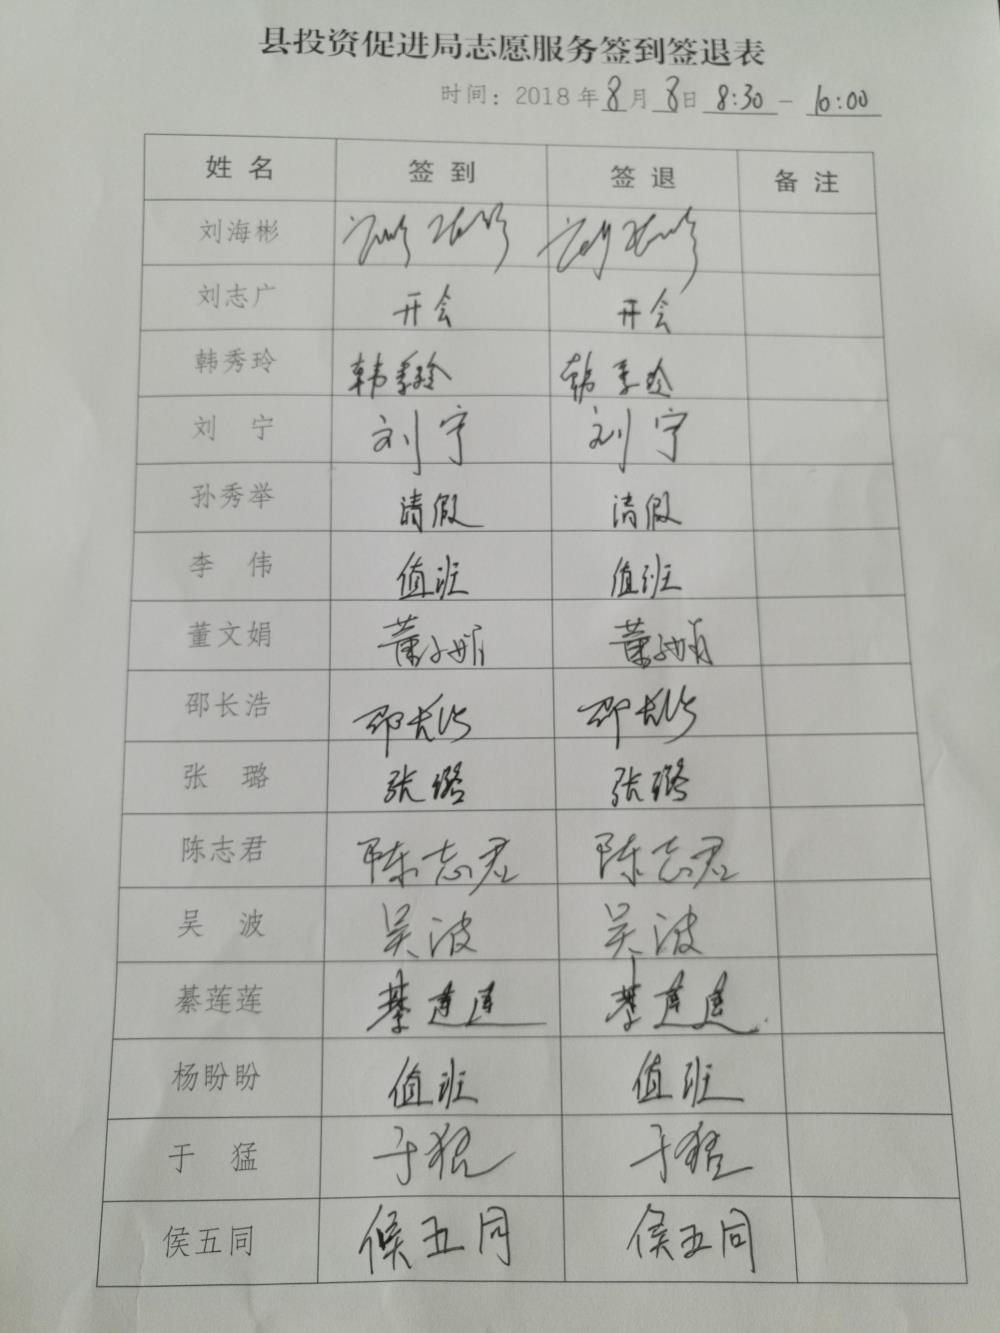 县投资促进局志愿服务签到签退表
时间：2018年8月8日8:30－10:00
姓名 签到 签退 备注
刘海彬
刘志广 开会 开会
韩秀玲 韩秀玲 韩秀玲
刘 宁 刘宁 刘宁
孙秀举 请假 请假
李 伟 值班 值班
董文娟 董文娟 董文娟
邵长浩 邵长浩 邵长浩
张 璐 张璐 张璐
陈志君 陈志君 陈志君
吴 波 吴波 吴波
綦莲莲 綦莲莲 綦莲莲
杨盼盼 值班 值班
于 猛 于猛 于猛
侯五同 侯五同 侯五同